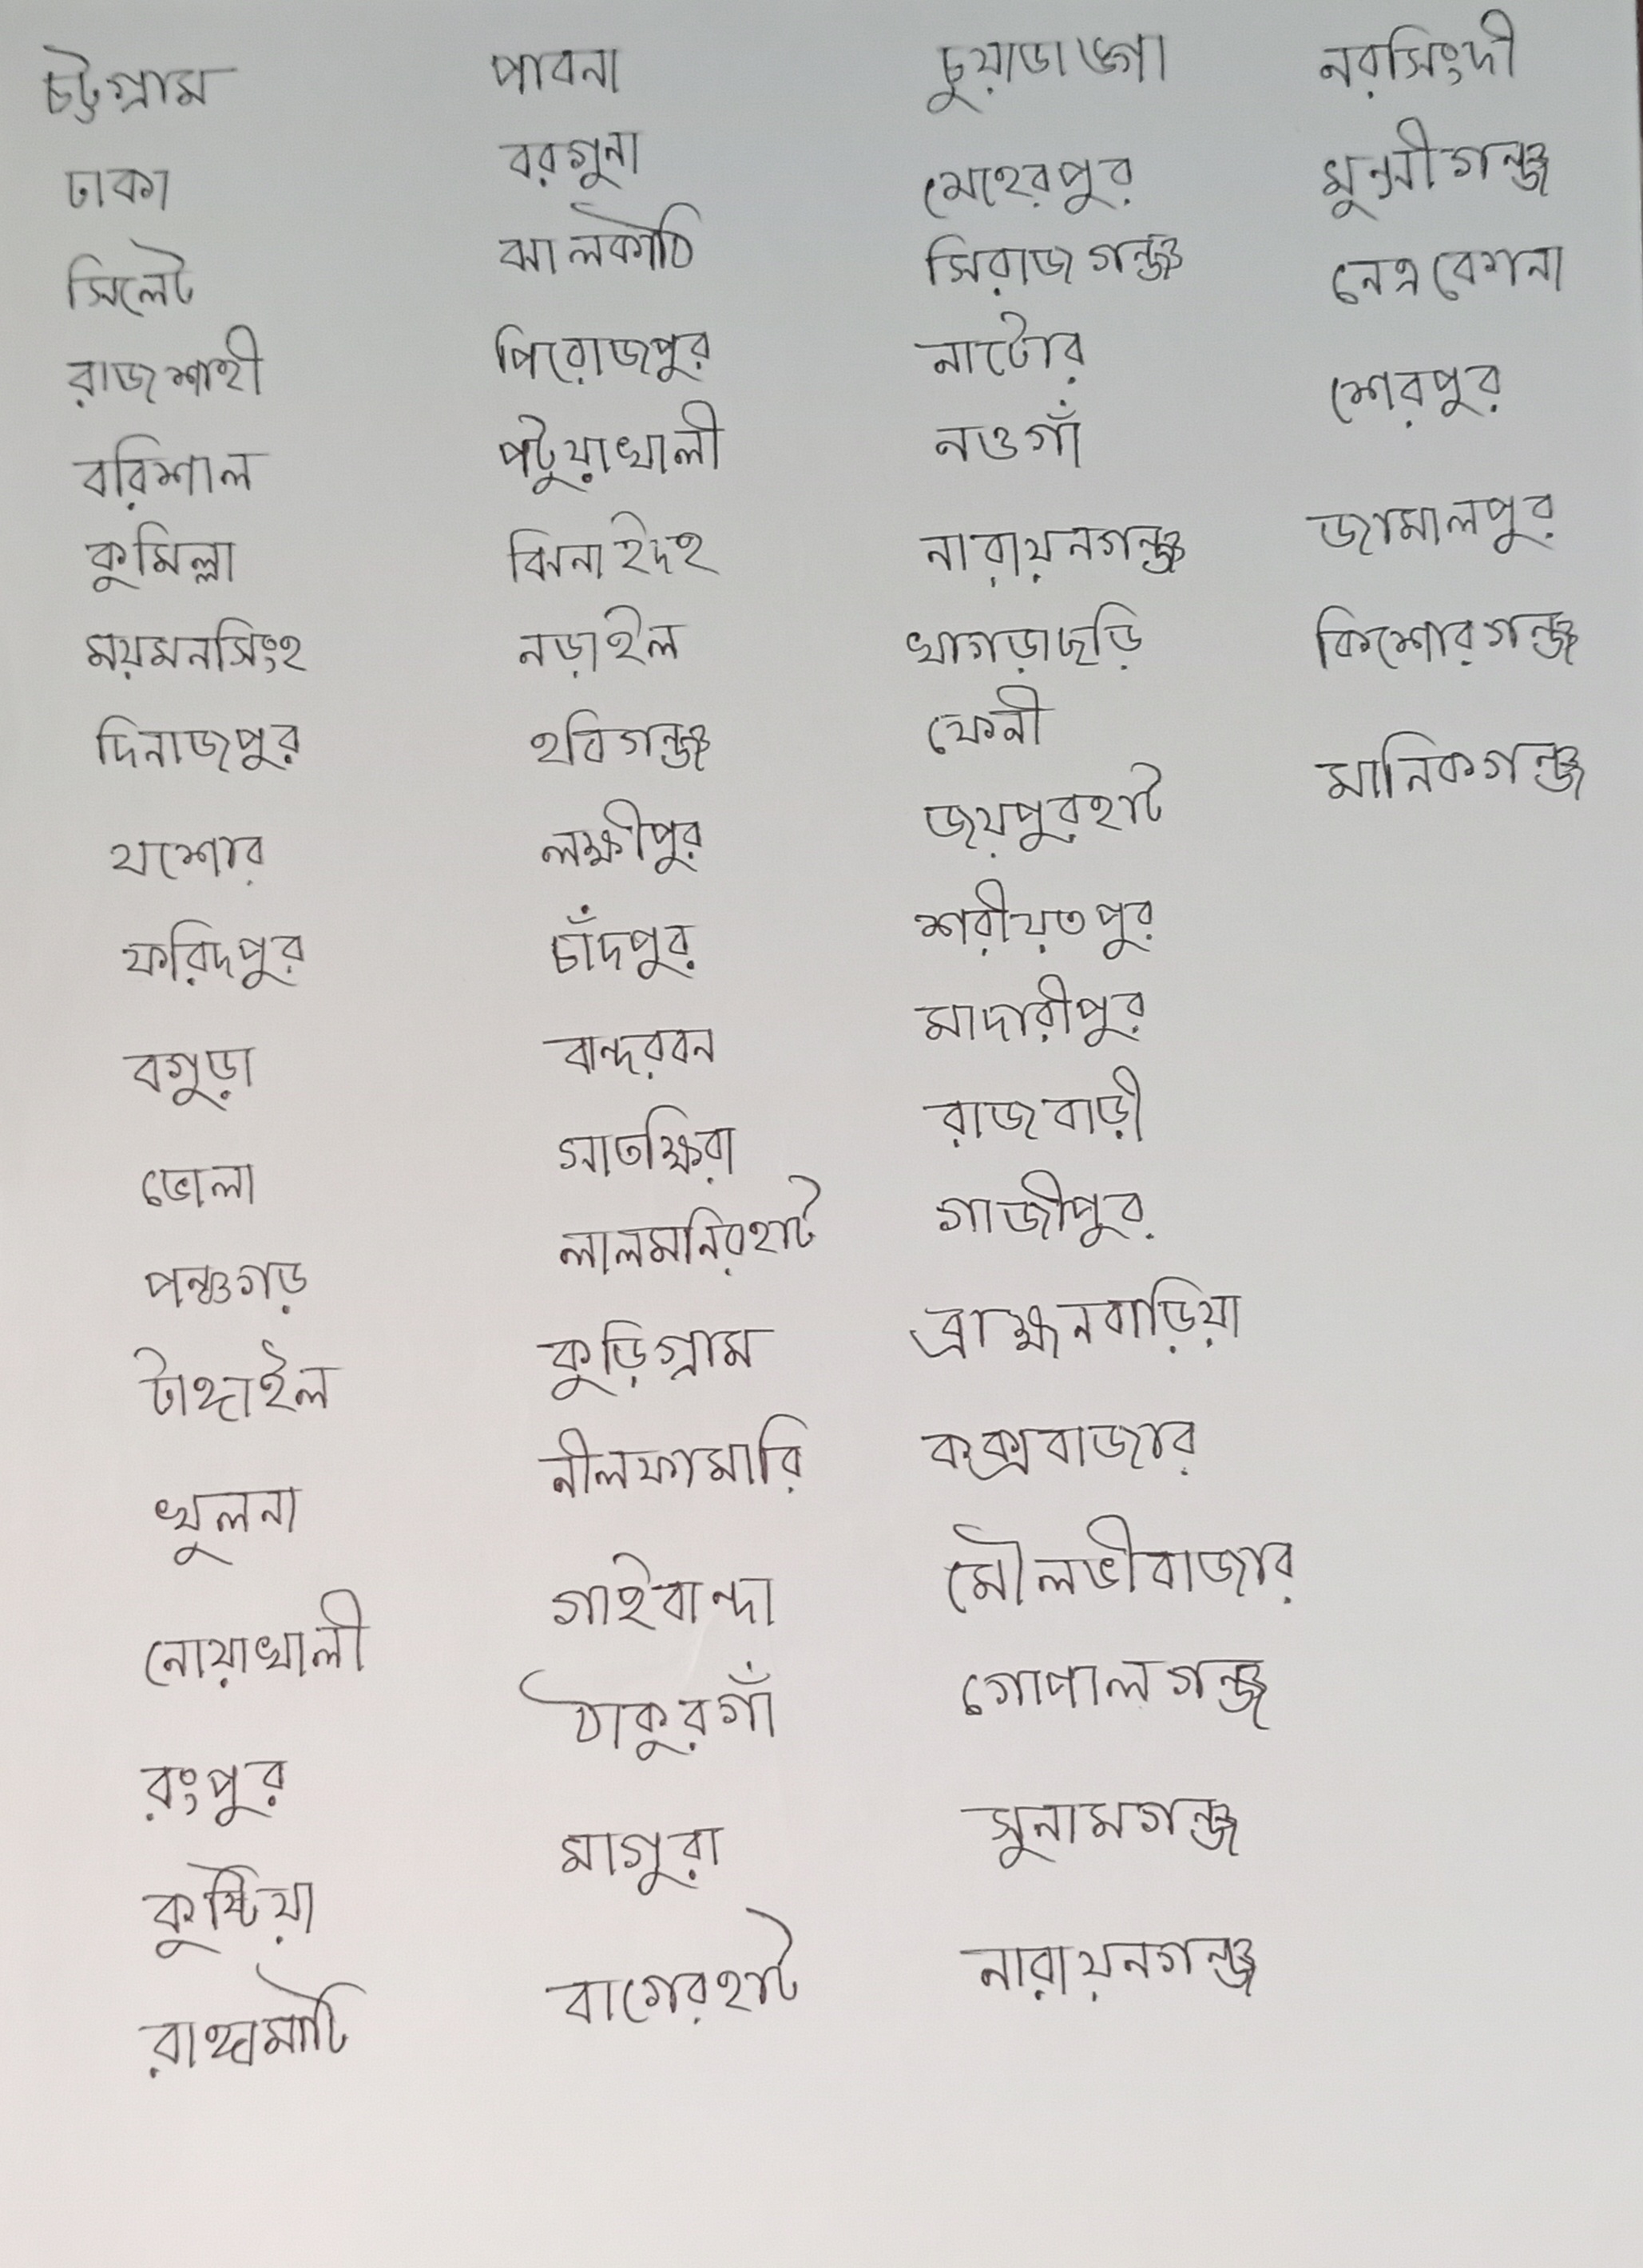 চট্টগ্রাম
ঢাকা
সিলেট
রাজশাহী
বরিশাল
কুমিল্লা
ময়মনসিংহ
দিনাজপুর
যশোর
ফরিদপুর
বগুড়া
ভোলা
পঞ্চগড়
টাঙ্গাইল
খুলনা
নোয়াখালী
রংপুর
কুষ্টিয়া
রাঙ্গামাটি
পাবনা
বরগুনা
ঝালকাঠি
পিরোজপুর
পটুয়াখালী
ঝিনাইদহ
নড়াইল
হবিগন্জ
লক্ষীপুর
চাঁদপুর
বান্দরবন
সাতক্ষিরা
লালমনিরহাট
কুড়িগ্রাম
নীলফামারি
গাইবান্দা
ঠাকুরগাঁ
মাগুরা
বাগেরহাট
চুয়াডাঙ্গা
মেহেরপুর
সিরাজগন্জ
নাটোর
নওগাঁ
নারায়নগন্জ
খাগড়াছড়ি
ফেনী
জয়পুরহাট
শরীয়তপুর
মাদারীপুর
রাজবাড়ী
গাজীপুর
ব্রাহ্মনবাড়িয়া
কক্সবাজার
মৌলভীবাজার
গোপালগন্জ
সুনামগন্জ
নারায়নগন্জ
নরসিংদী
মুন্সীগন্জ
নেত্রকোনা
শেরপুর
জামালপুর
কিশোরগন্জ
মানিকগন্জ